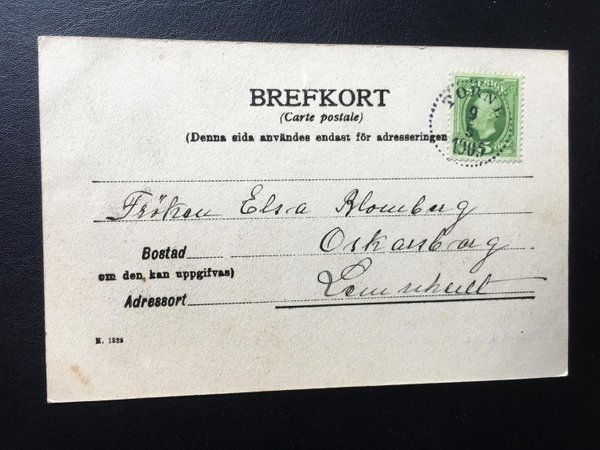 BREFKORT
(Carte postale)
(Denna sida användes endast för adresseringen
TORNE
9
5
1905
5
Fröken Elsa Blomberg
Bostad
Oskarsborg
om den kan uppgifvas)
Adressort
Lemnhult